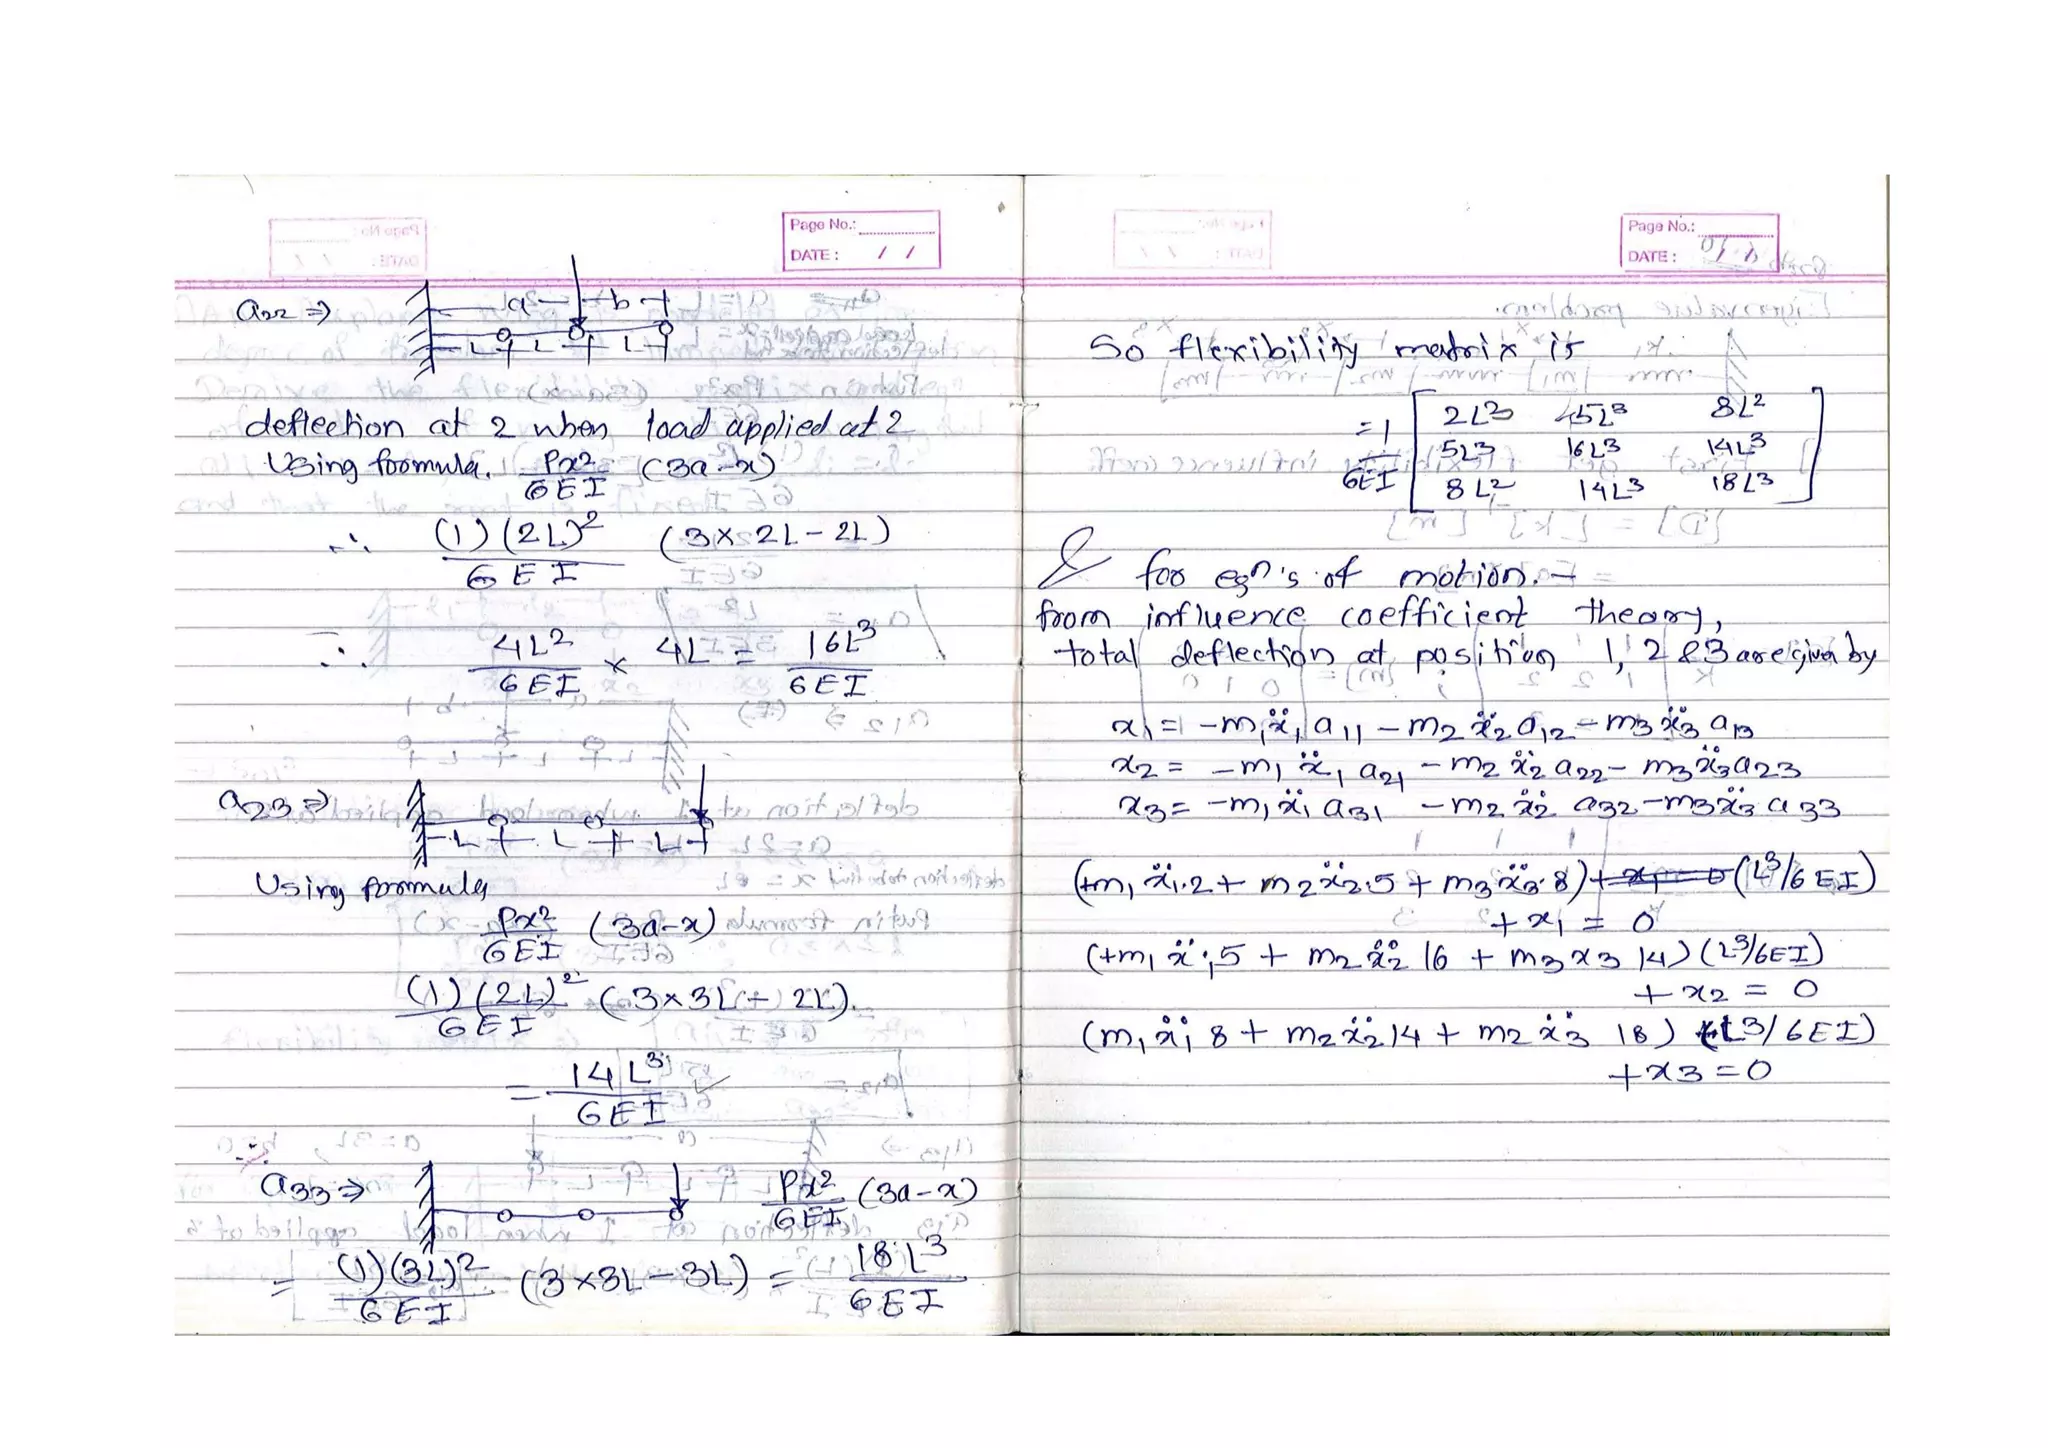 Page No.:
DATE : / /
a22 ⇒
a b
L L L
deflection at 2 when load applied at 2
Using formula. Px²/6EI (3a-x)
∴ (1)(2L)²/6EI (3×2L-2L)
∴ 4L²/6EI × 4L = 16L³/6EI
a23 ⇒
L L L
Using formula
Px²/6EI (3a-x)
(1)(2L)²/6EI (3×3L-2L).
= 14L³/6EI
∴
a33 ⇒ Px²/6EI (3a-x)
= (1)(3L)²/6EI (3×3L-3L) = 18L³/6EI
Page No.:
DATE : / /
So flexibility matrix is
= 1/6EI [ 2L³ 5L³ 8L²
5L³ 16L³ 14L³
8L² 14L³ 18L³ ]
for eqn's of motion. -
from influence coefficient theory,
total deflection at position 1, 2 & 3 are given by
x1 = -m1ẍ1 a11 - m2ẍ2 a12 - m3ẍ3 a13
x2 = -m1ẍ1 a21 - m2ẍ2 a22 - m3ẍ3 a23
x3 = -m1ẍ1 a31 - m2ẍ2 a32 - m3ẍ3 a33
(+m1ẍ1.2 + m2ẍ2.5 + m3ẍ3.8) (L³/6EI)
+ x1 = 0
(+m1ẍ1 5 + m2ẍ2 16 + m3x3 14) (L³/6EI)
+ x2 = 0
(m1ẍ1 8 + m2ẍ2 14 + m2ẍ3 18) (L3/6EI)
+ x3 = 0